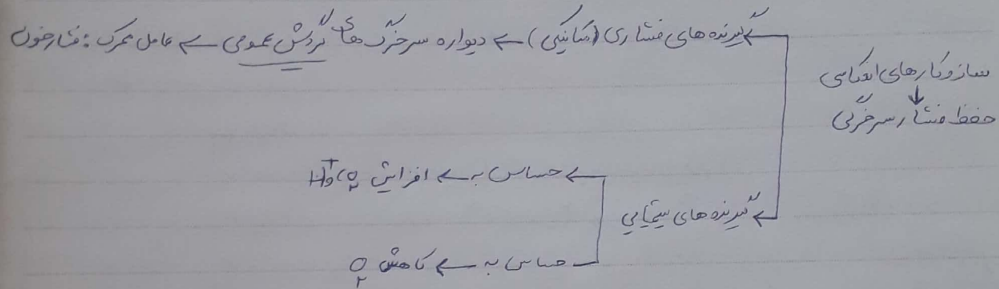 سازوکارهای انعکاسی
↓
حفظ فشار سرخرگی
← گیرنده های فشاری (مکانیکی) ← دیواره سرخرگ های گردش عمومی ← عامل محرک : فشار خون
← گیرنده های شیمیایی
← حساس به ← افزایش CO₂ و H⁺
← حساس به ← کاهش O₂